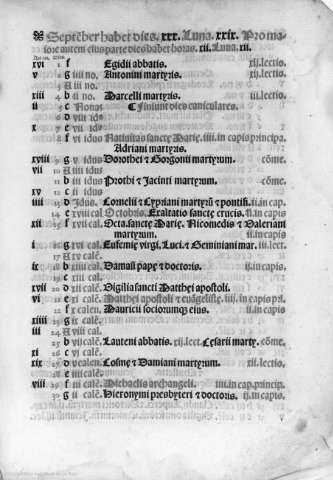 Septẽber habet dies. xxx. Luna. xxix. Pro ma-
iore autem eius parte dies habet horas. xii. Luna. xii.
xvi 1 f Egidii abbatis. iij.lectio.
v 2 g iiii no. Antonini martyris.
3 A iii no.
xiii 4 b ii no. Marcelli martyris. iij.lectio.
ii 5 c Nonas Finiuni dies caniculares.
6 d viii idus
x 7 e vii idus
8 f vi idus Natiuitas sanctę Marię. iiii.in capis principa.
Adriani martyris.
xviii 9 g v idus Dorothei ⁊ Gorgonii martyrum. cõme.
vii 10 A iiii idus
11 b iii idus Prothi ⁊ Jacinti martyrum. cõme.
xv 12 c ii idus
iiii 13 d Idus. Cornelii ⁊ Cypriani martyrũ ⁊ pontifi.
14 e xviii cal. Octobris. Exaltatio sanctę crucis. ii.in capis
xii 15 f xvii cal. Octa.sanctę Marię. Nicomedis ⁊ Valeriani
martyrum. ii.in capis
i 16 g xvi cal. Eufemię virgi. Luci.⁊ Geminiani mar. iii.lect.
17 A xv calẽ.
ix 18 b Damasi papę ⁊ doctoris. ij.in capis.
xvii 20 d xii calẽ. Vigilia sancti Matthęi apostoli.
vi 21 e xi calẽ. Matthęi apostoli ⁊ euãgelistę. iiij.in capis pã.
22 f x calen. Mauricii sociorumq̃ eius. ij.in capis
xiiii 23 g ix calẽ.
iii 24 A viii cal.
25 b vii calẽ. Lauteni abbatis. iij.lect. Cesarii marty. cõme.
xi 26 c vi calẽ.
xix 27 d v calen. Cosmę ⁊ Damiani martyrum. iij.lectio.
28 e iiii calẽ.
viii 29 f iii calẽ. Michaelis archangeli. iiii.in cap.princip.
30 g ii calẽ. Hieronymi presbyteri ⁊ doctoris. ij.in capis